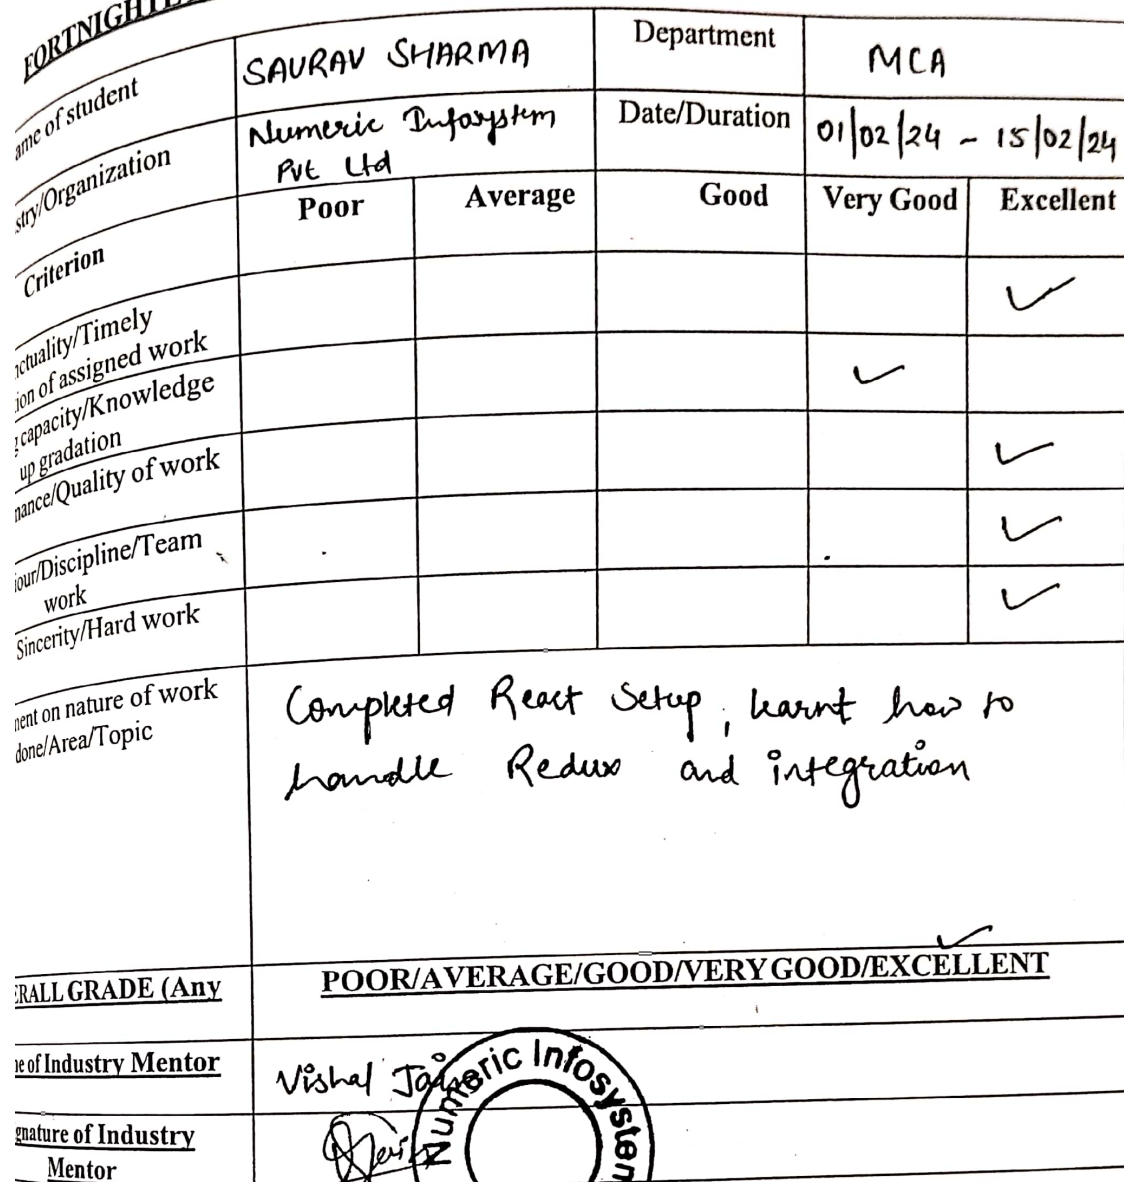 FORTNIGHTL
ame of student SAURAV SHARMA Department MCA
stry/Organization Numeric Infosystem Date/Duration 01/02/24 - 15/02/24
Pvt Ltd
Criterion Poor Average Good Very Good Excellent
nctuality/Timely ✓
ion of assigned work
g capacity/Knowledge ✓
up gradation
mance/Quality of work ✓
iour/Discipline/Team ✓
work
Sincerity/Hard work ✓
nent on nature of work Completed React Setup, learnt how to
done/Area/Topic handle Redux and integration
✓
ERALL GRADE (Any POOR/AVERAGE/GOOD/VERY GOOD/EXCELLENT
ne of Industry Mentor Vishal Jain
Numeric Infosystem
gnature of Industry
Mentor